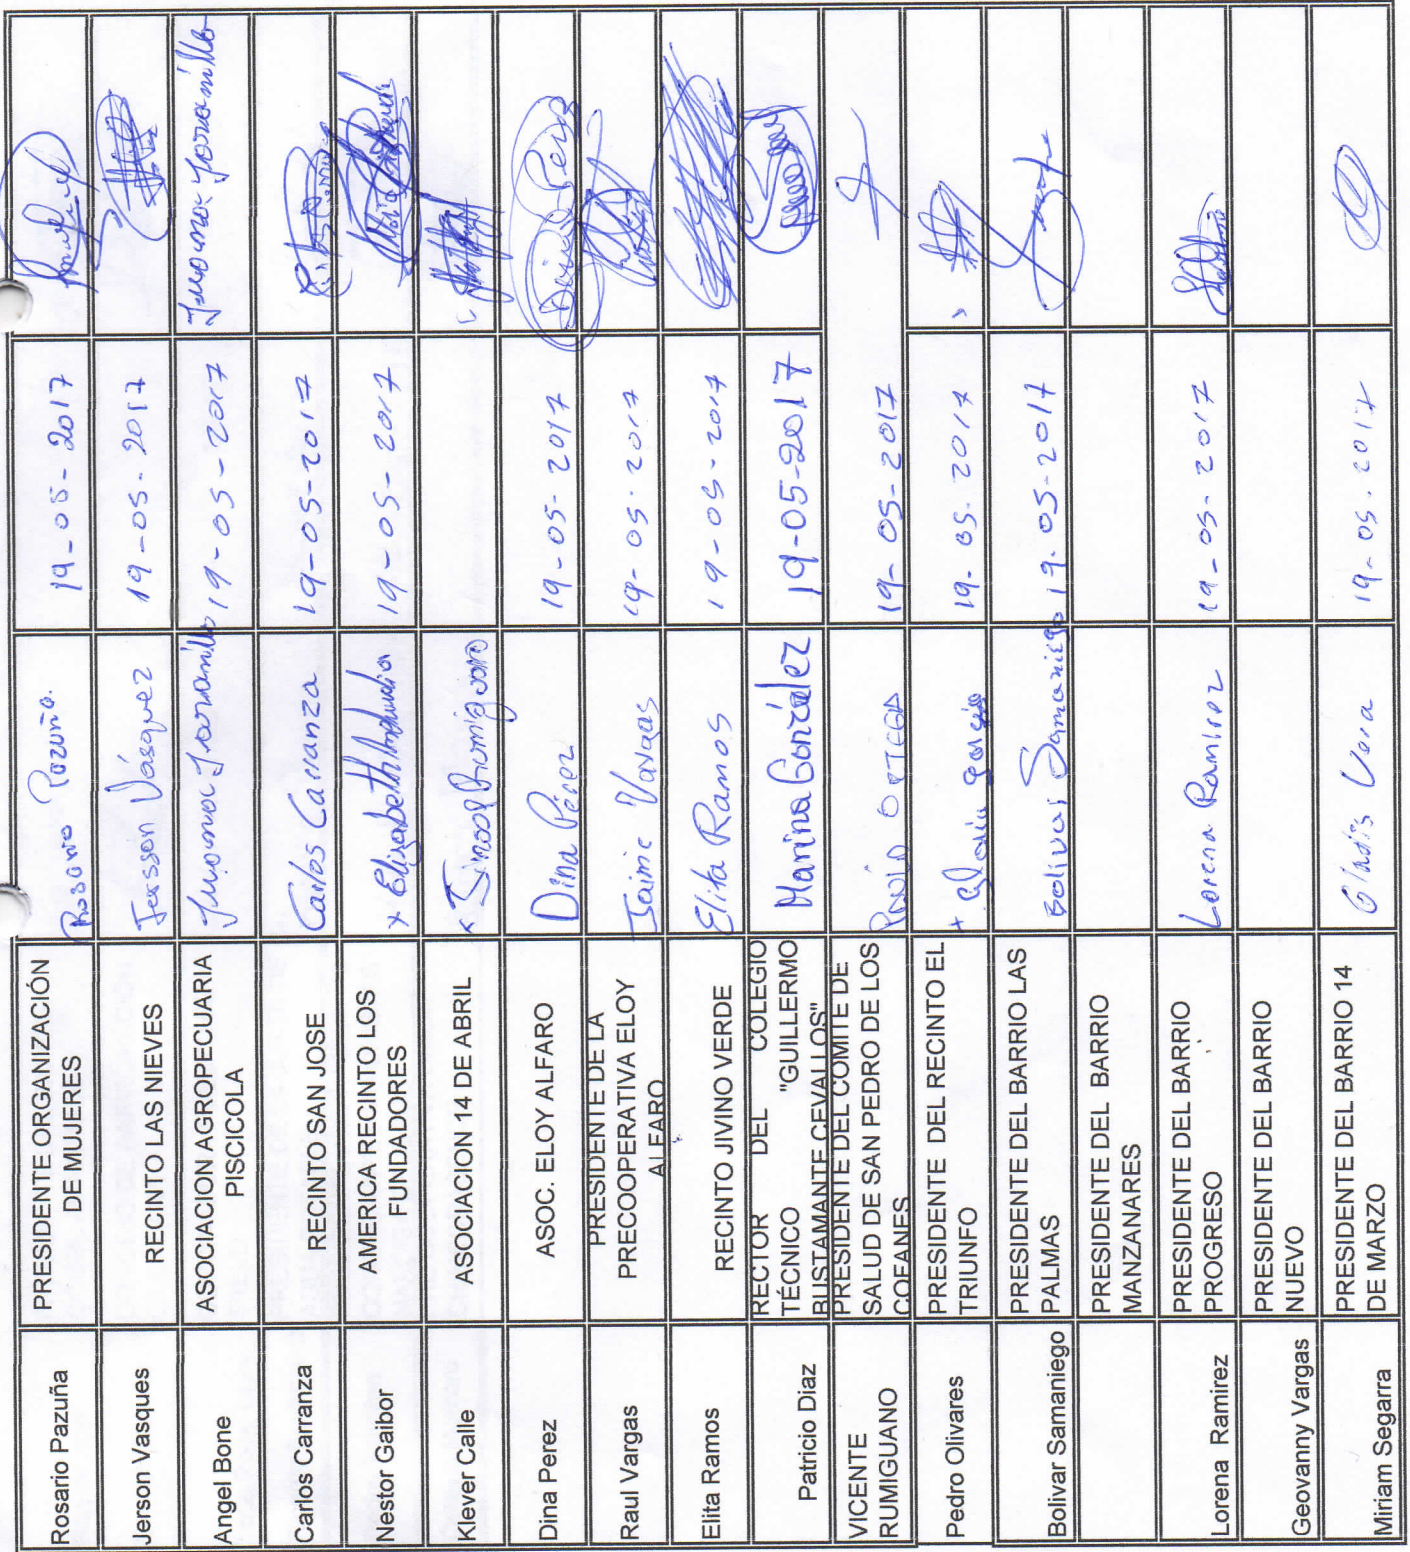 Rosario Pazuña
PRESIDENTE ORGANIZACIÓN
DE MUJERES
Rosario Pazuña.
19-05-2017
Jerson Vasques
RECINTO LAS NIEVES
Jersson Vásquez
19-05-2017
Angel Bone
ASOCIACION AGROPECUARIA
PISCICOLA
Jaramillo
19-05-2017
Jaramillo
Carlos Carranza
RECINTO SAN JOSE
Carlos Carranza
19-05-2017
Nestor Gaibor
AMERICA RECINTO LOS
FUNDADORES
x Elizabeth
19-05-2017
Klever Calle
ASOCIACION 14 DE ABRIL
Dina Perez
ASOC. ELOY ALFARO
Dina Pérez
19-05-2017
Dina Perez
Raul Vargas
PRESIDENTE DE LA
PRECOOPERATIVA ELOY
ALFARO
Jaime Vargas
19-05-2017
Elita Ramos
RECINTO JIVINO VERDE
Elita Ramos
19-05-2017
Patricio Diaz
RECTOR DEL COLEGIO
TÉCNICO "GUILLERMO
BUSTAMANTE CEVALLOS"
Marina González
19-05-2017
VICENTE
RUMIGUANO
PRESIDENTE DEL COMITE DE
SALUD DE SAN PEDRO DE LOS
COFANES
ORTEGA
19-05-2017
Pedro Olivares
PRESIDENTE DEL RECINTO EL
TRIUNFO
+ García
19-05-2017
Bolivar Samaniego
PRESIDENTE DEL BARRIO LAS
PALMAS
Bolivar Samaniego
19-05-2017
PRESIDENTE DEL BARRIO
MANZANARES
Lorena Ramirez
PRESIDENTE DEL BARRIO
PROGRESO
Lorena Ramirez
19-05-2017
Geovanny Vargas
PRESIDENTE DEL BARRIO
NUEVO
Miriam Segarra
PRESIDENTE DEL BARRIO 14
DE MARZO
Gladis Vera
19-05-2017